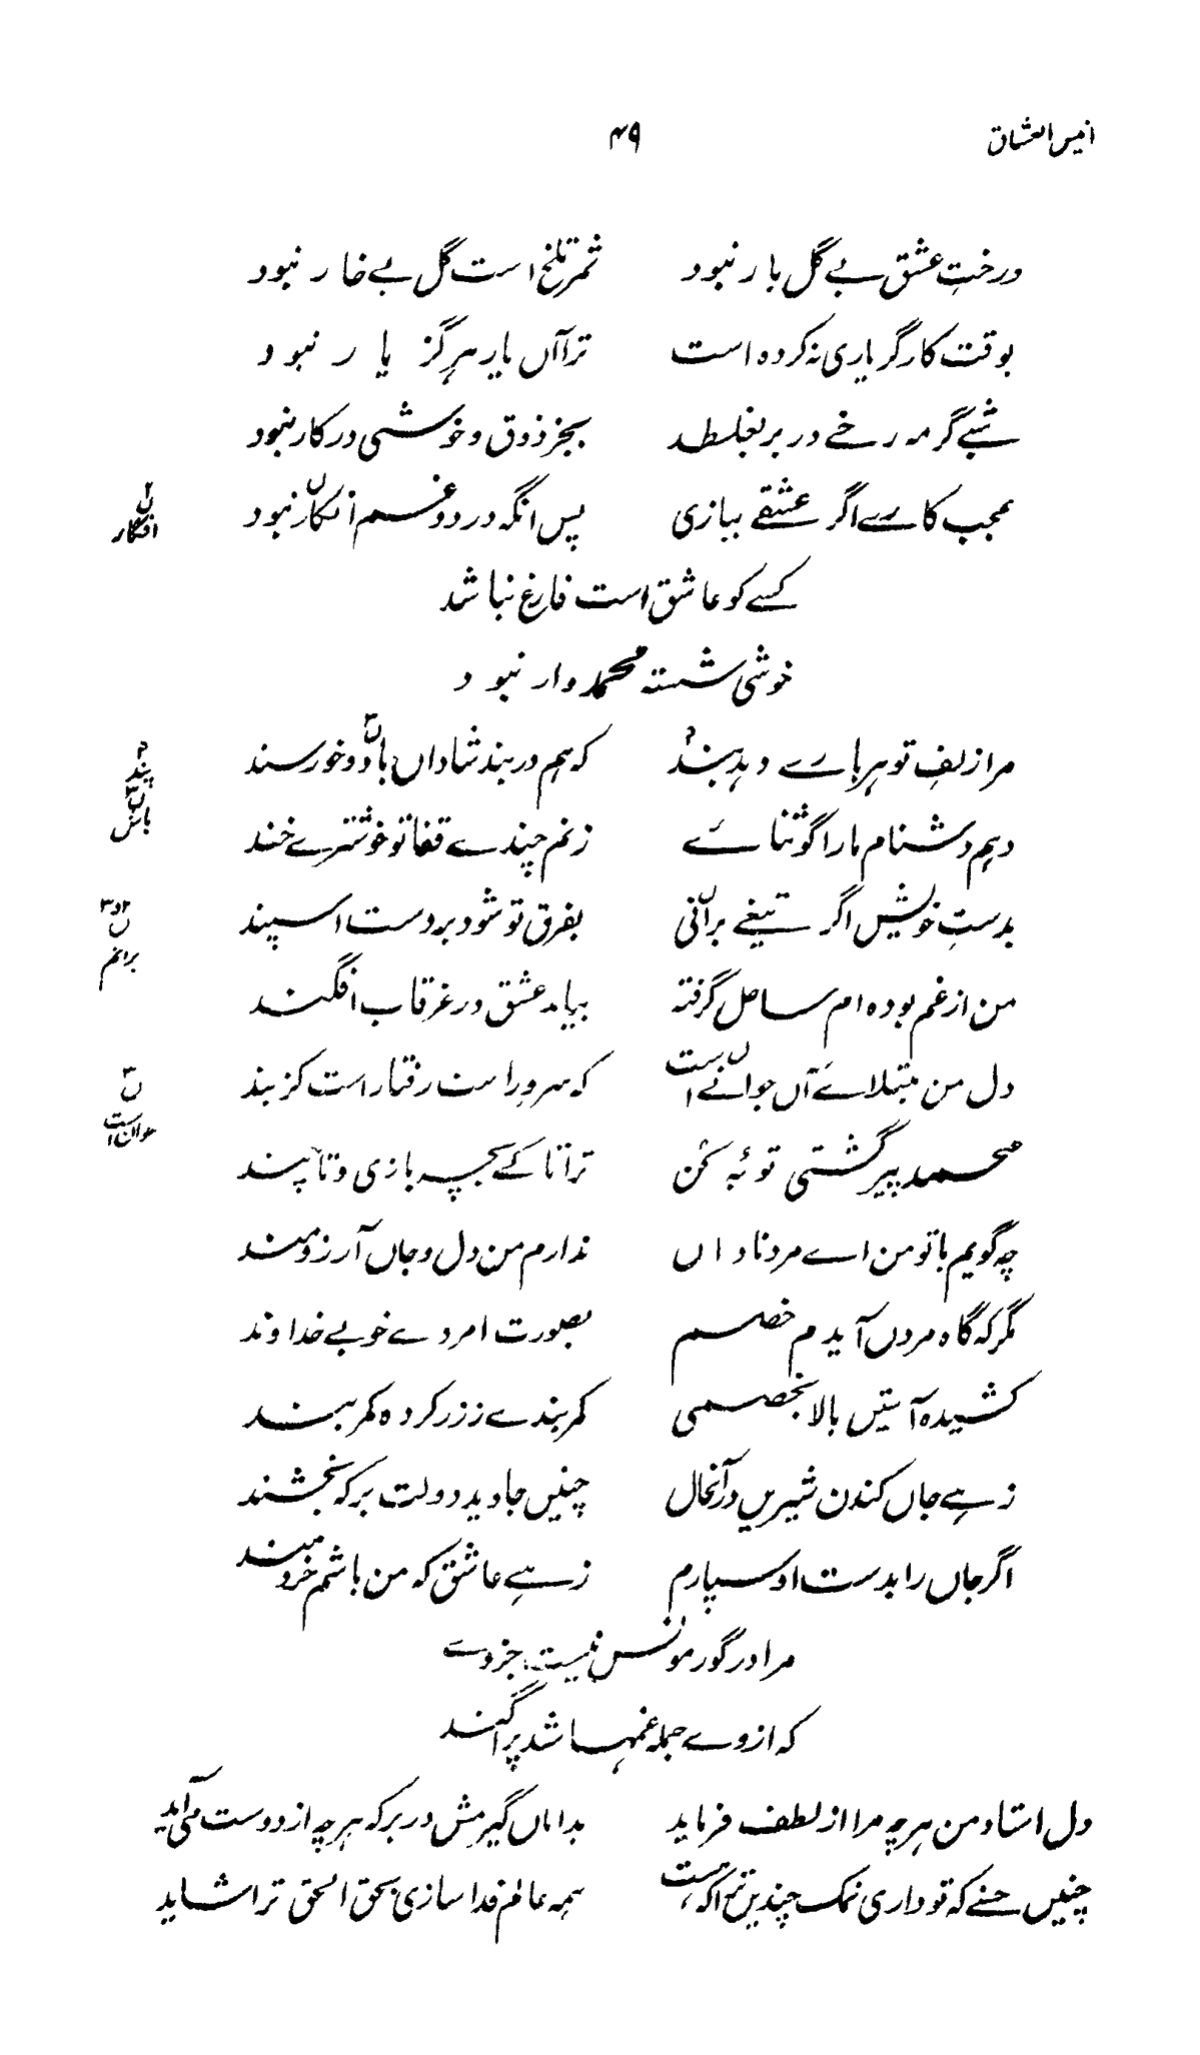 انیس العشاق ۴۹
درختِ عشق بے گل بار نبود ثمر تلخ است گل بے خار نبود
بوقت کار گر یاری نہ کردہ است ترا آں یار ہرگز یار نبود
شبے گر مہ رخے در بر بغلطد بجز ذوق و خوشی در کار نبود
عجب کارے اگر عشقے ببازی پس انگہ درد و غم انکار نبود
ن افگار
کسے کو عاشق است فارغ نباشد
خوشی شستہ محمد وار نبود
مرا زلفِ تو ہر بارے دہد بند کہ ہم در بند شاداں باد و خورسند
پند
ن باش
دہم دشنام ما را گو ثنائے زنم چندے قفا تو خوشترے خند
بدستِ خویش اگر تیغے برانی بفرق تو شود بر دست اسپند
ن برانم
من از غم بودہ ام ساحل گرفتہ بیامد عشق در غرقاب افگند
دل من مبتلائے آں جوانے است کہ سرو راست رفتار است کز بند
ن جوان است
محمد پیر گشتی توبہ کن ترا تا کے بچہ بازی و تا پند
چہ گویم با تو من اے مرد ناداں ندارم من دل و جاں آرزومند
مگر کہ گاہ مردن آیدم خصم بصورت امردے خوبے خداوند
کشیدہ آستیں بالا بخصمی کمر بندے ز زر کردہ کمر بند
زہے جاں کندن شیریں در آنحال چنیں جاوید دولت بر کہ بخشند
اگر جاں را بدست او سپارم زہے عاشق کہ من باشم خردمند
مرا در گور مونس نیست جز وے
کہ از وے جملہ غمہا شد پراگند
دل استاد من ہرچہ مرا از لطف فرماید بداماں گیرمش در بر کہ ہرچہ از دوست می آید
چنیں حسنے کہ تو داری نمک چندیں ترا کہ است ہمہ عالم فدا سازی بحق الحق ترا شاید